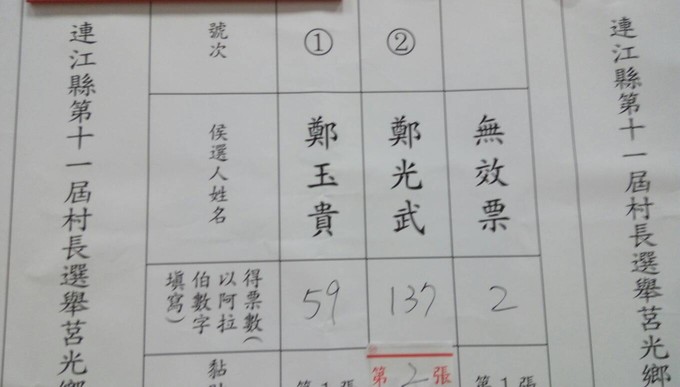 連江縣第十一屆村長選舉莒光鄉
號次 ① ②
候選人姓名 鄭玉貴 鄭光武 無效票
得票數(以阿拉伯數字填寫) 59 137 2
黏
第1張 第2張 第1張
連江縣第十一屆村長選舉莒光鄉